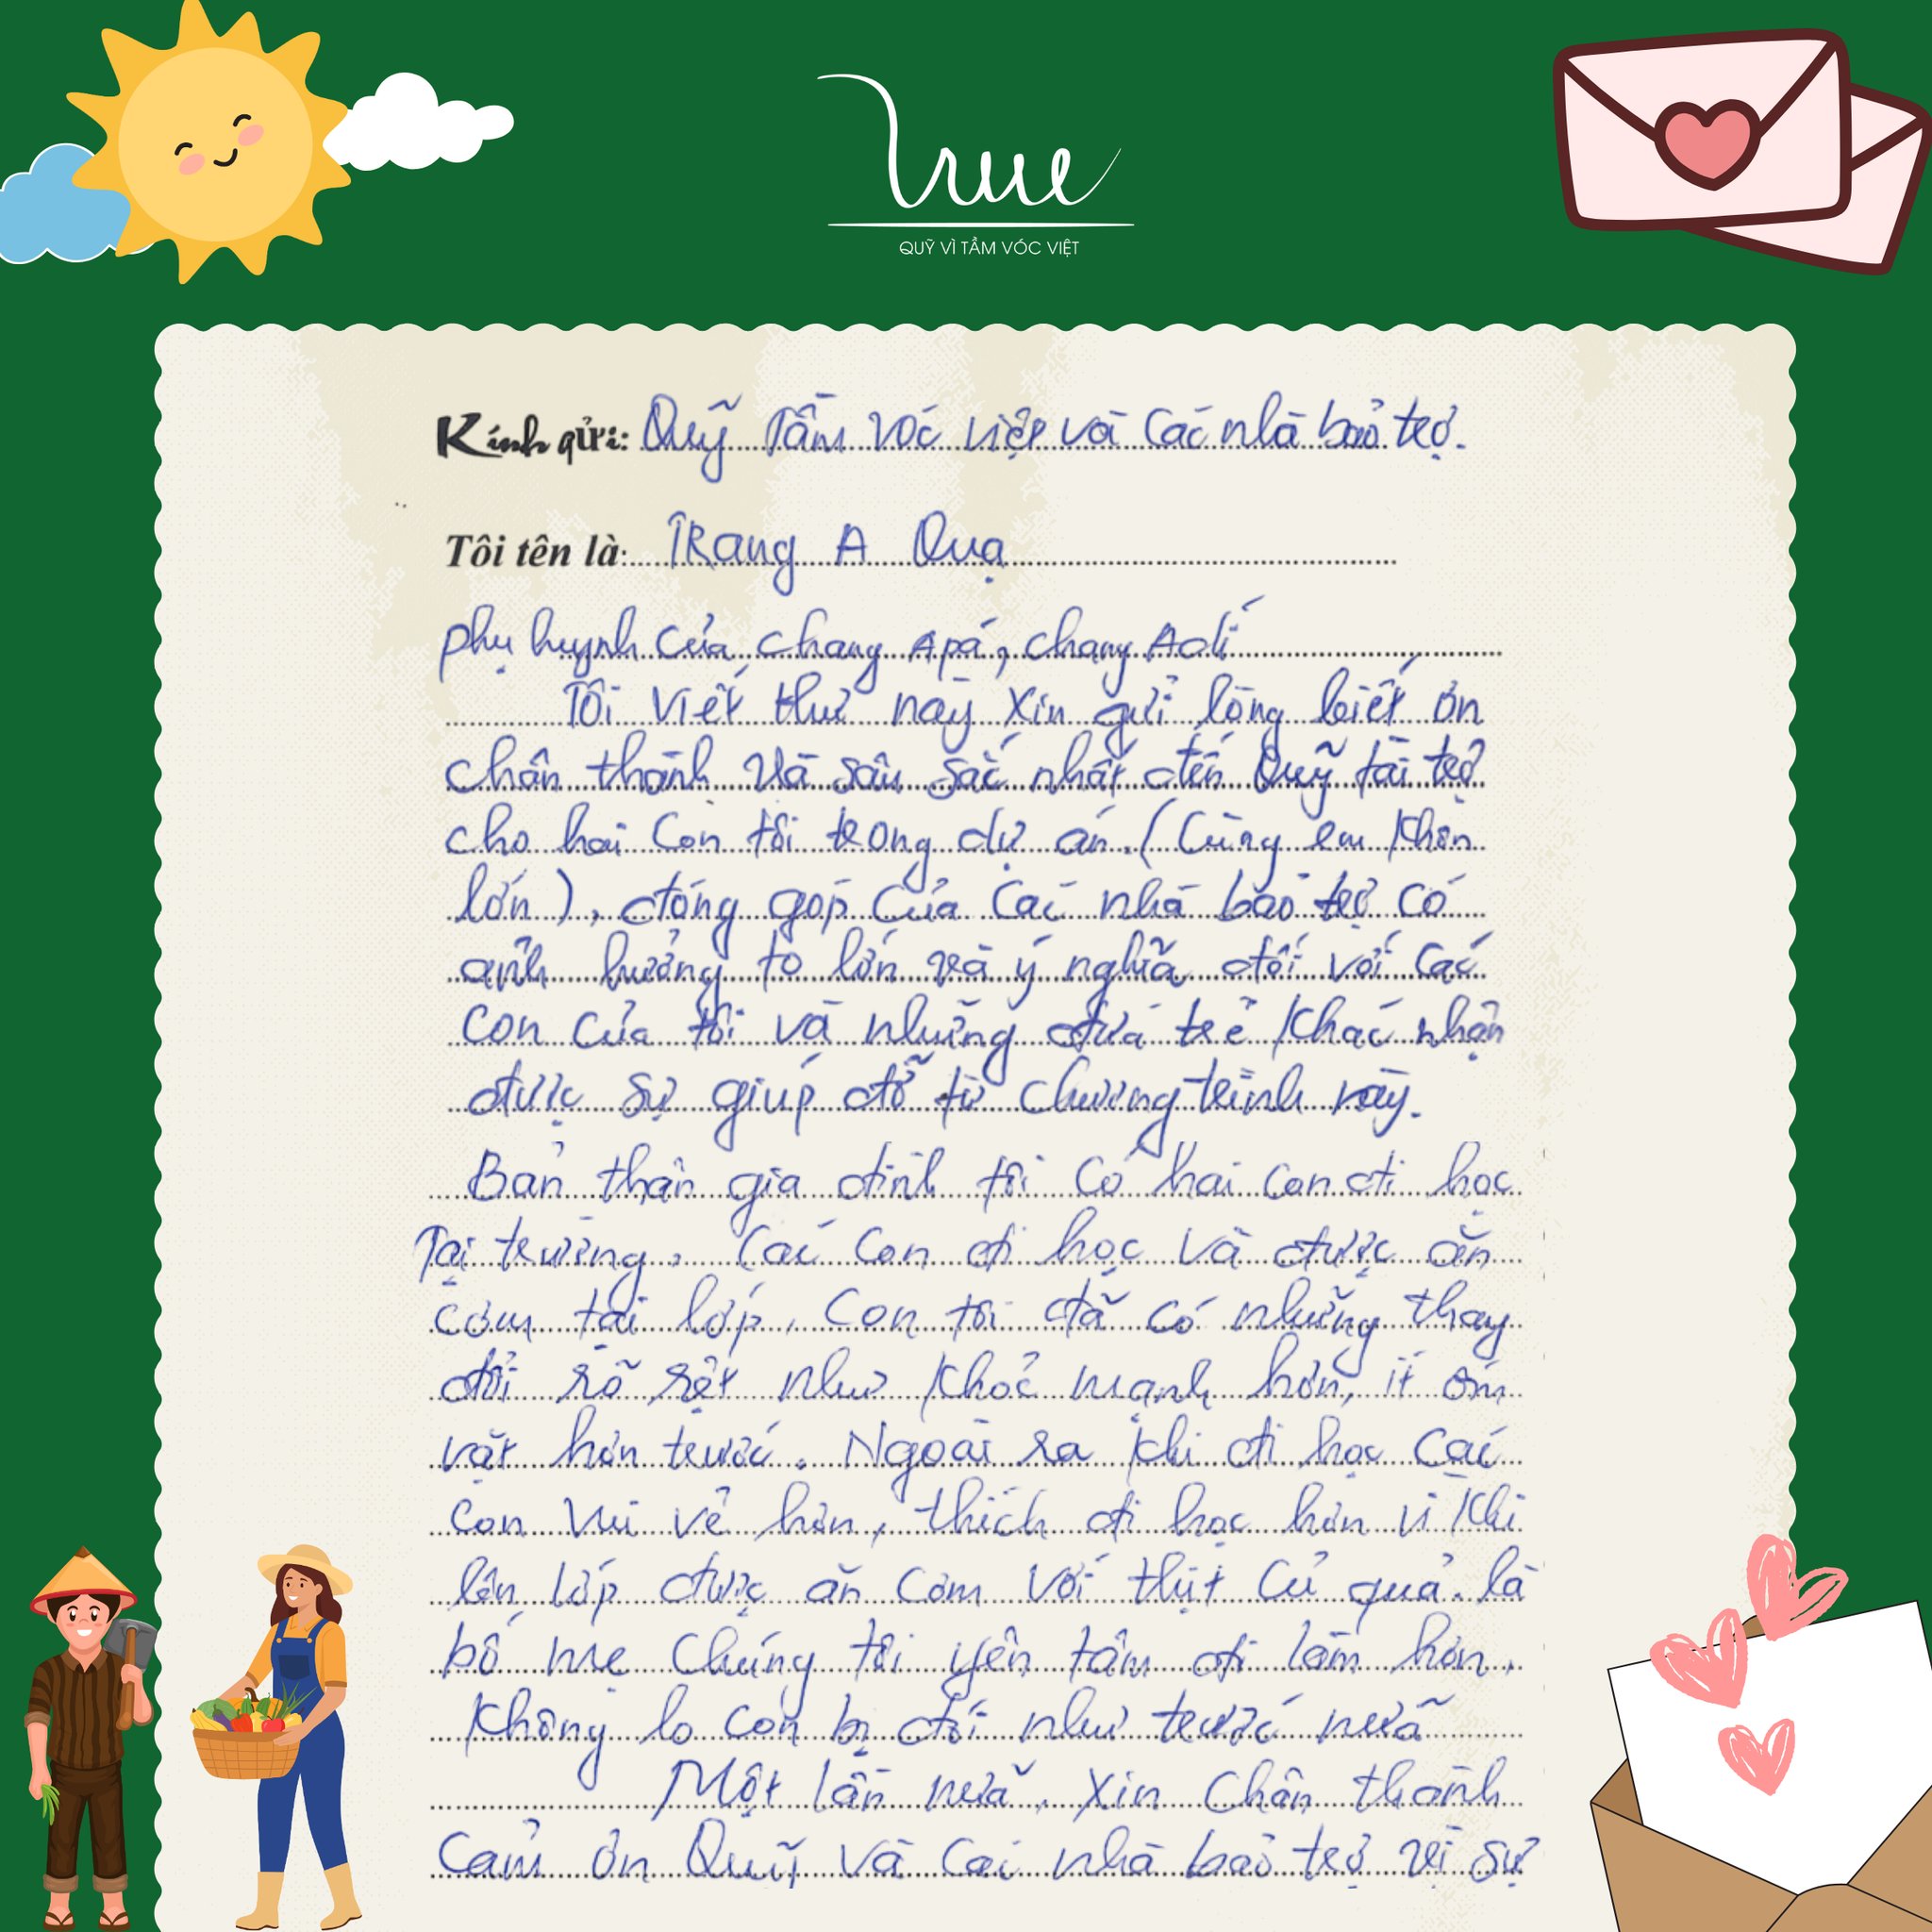 True
QUỸ VÌ TẦM VÓC VIỆT
Kính gửi: Quỹ Tầm Vóc Việt và Các nhà bảo trợ.
Tôi tên là: TRang A Qua
phụ huynh của chang Apá, chang Adí
Tôi viết thư này xin gửi lòng biết ơn
chân thành và sâu sắc nhất đến Quỹ tài trợ
cho hai con tôi trong dự án (Cùng em khôn
lớn), đóng góp của các nhà bảo trợ có
ảnh hưởng to lớn và ý nghĩa đối với các
con của tôi và những đứa trẻ khác nhận
được sự giúp đỡ từ chương trình này.
Bản thân gia đình tôi có hai con đi học
Tại trường. Các con đi học và được ăn
cơm tại lớp, con tôi đã có những thay
đổi rõ rệt như khỏe mạnh hơn, ít ốm
vặt hơn trước. Ngoài ra khi đi học các
con vui vẻ hơn, thích đi học hơn vì khi
lên lớp được ăn cơm với thịt củ quả. là
bố mẹ chúng tôi yên tâm đi làm hơn,
không lo con bị đói như trước nữa
Một lần nữa, xin chân thành
cảm ơn Quỹ và các nhà bảo trợ vì sự